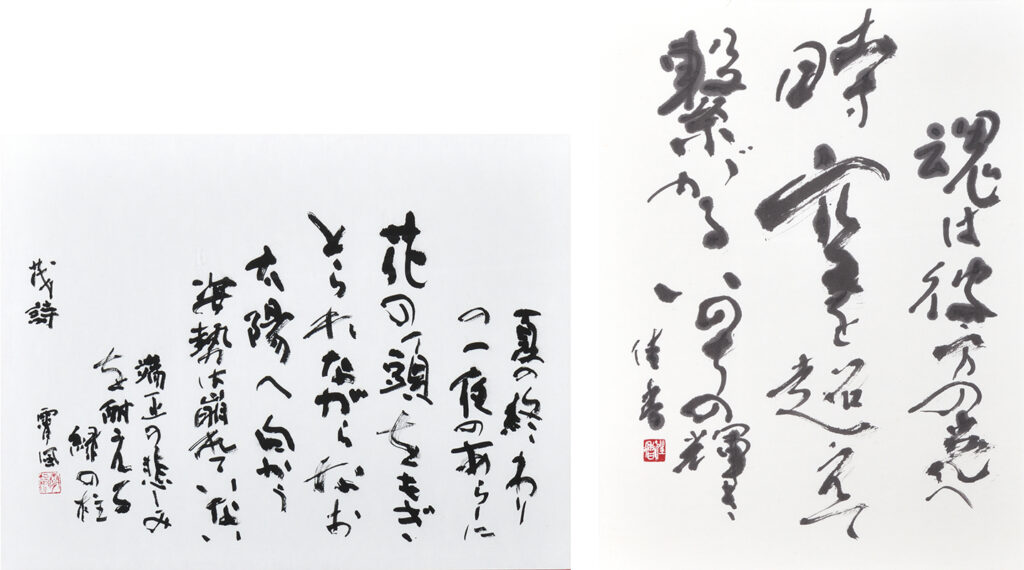 夏の終わり
の一夜のあらしに
花の頭をもぎ
とられながらなお
太陽へ向かう
姿勢は崩れていない
端正の悲しみ
を耐える
緑の柱
茂詩
魂は彼方の へ
時空を超えて
繋がるいのちの輝き